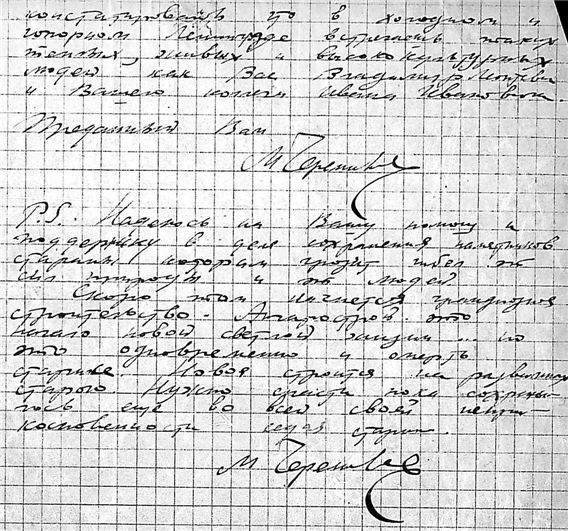 констатировать что в холодном и
гопорном Ленинграде встречать таких
теплых, живых и высококультурных
людей как Вас Владимир
и Вашего коллегу Ивана Ивановича.
Преданный Вам
М Черепи
P.S. Надеюсь на Вашу помощь и
поддержку в деле сохранения памятников
старины которым грозит гибель
от природы и людей
Скоро там начнется грандиозное
строительство - Ангарострой. это
начало новой светлой жизни ... но
это одновременно и смерть
старине. Новое строится на развалинах
старого. Нужно спасти пока сохрани-
лось еще во всей своей непри-
косновенности старин
М Черепи